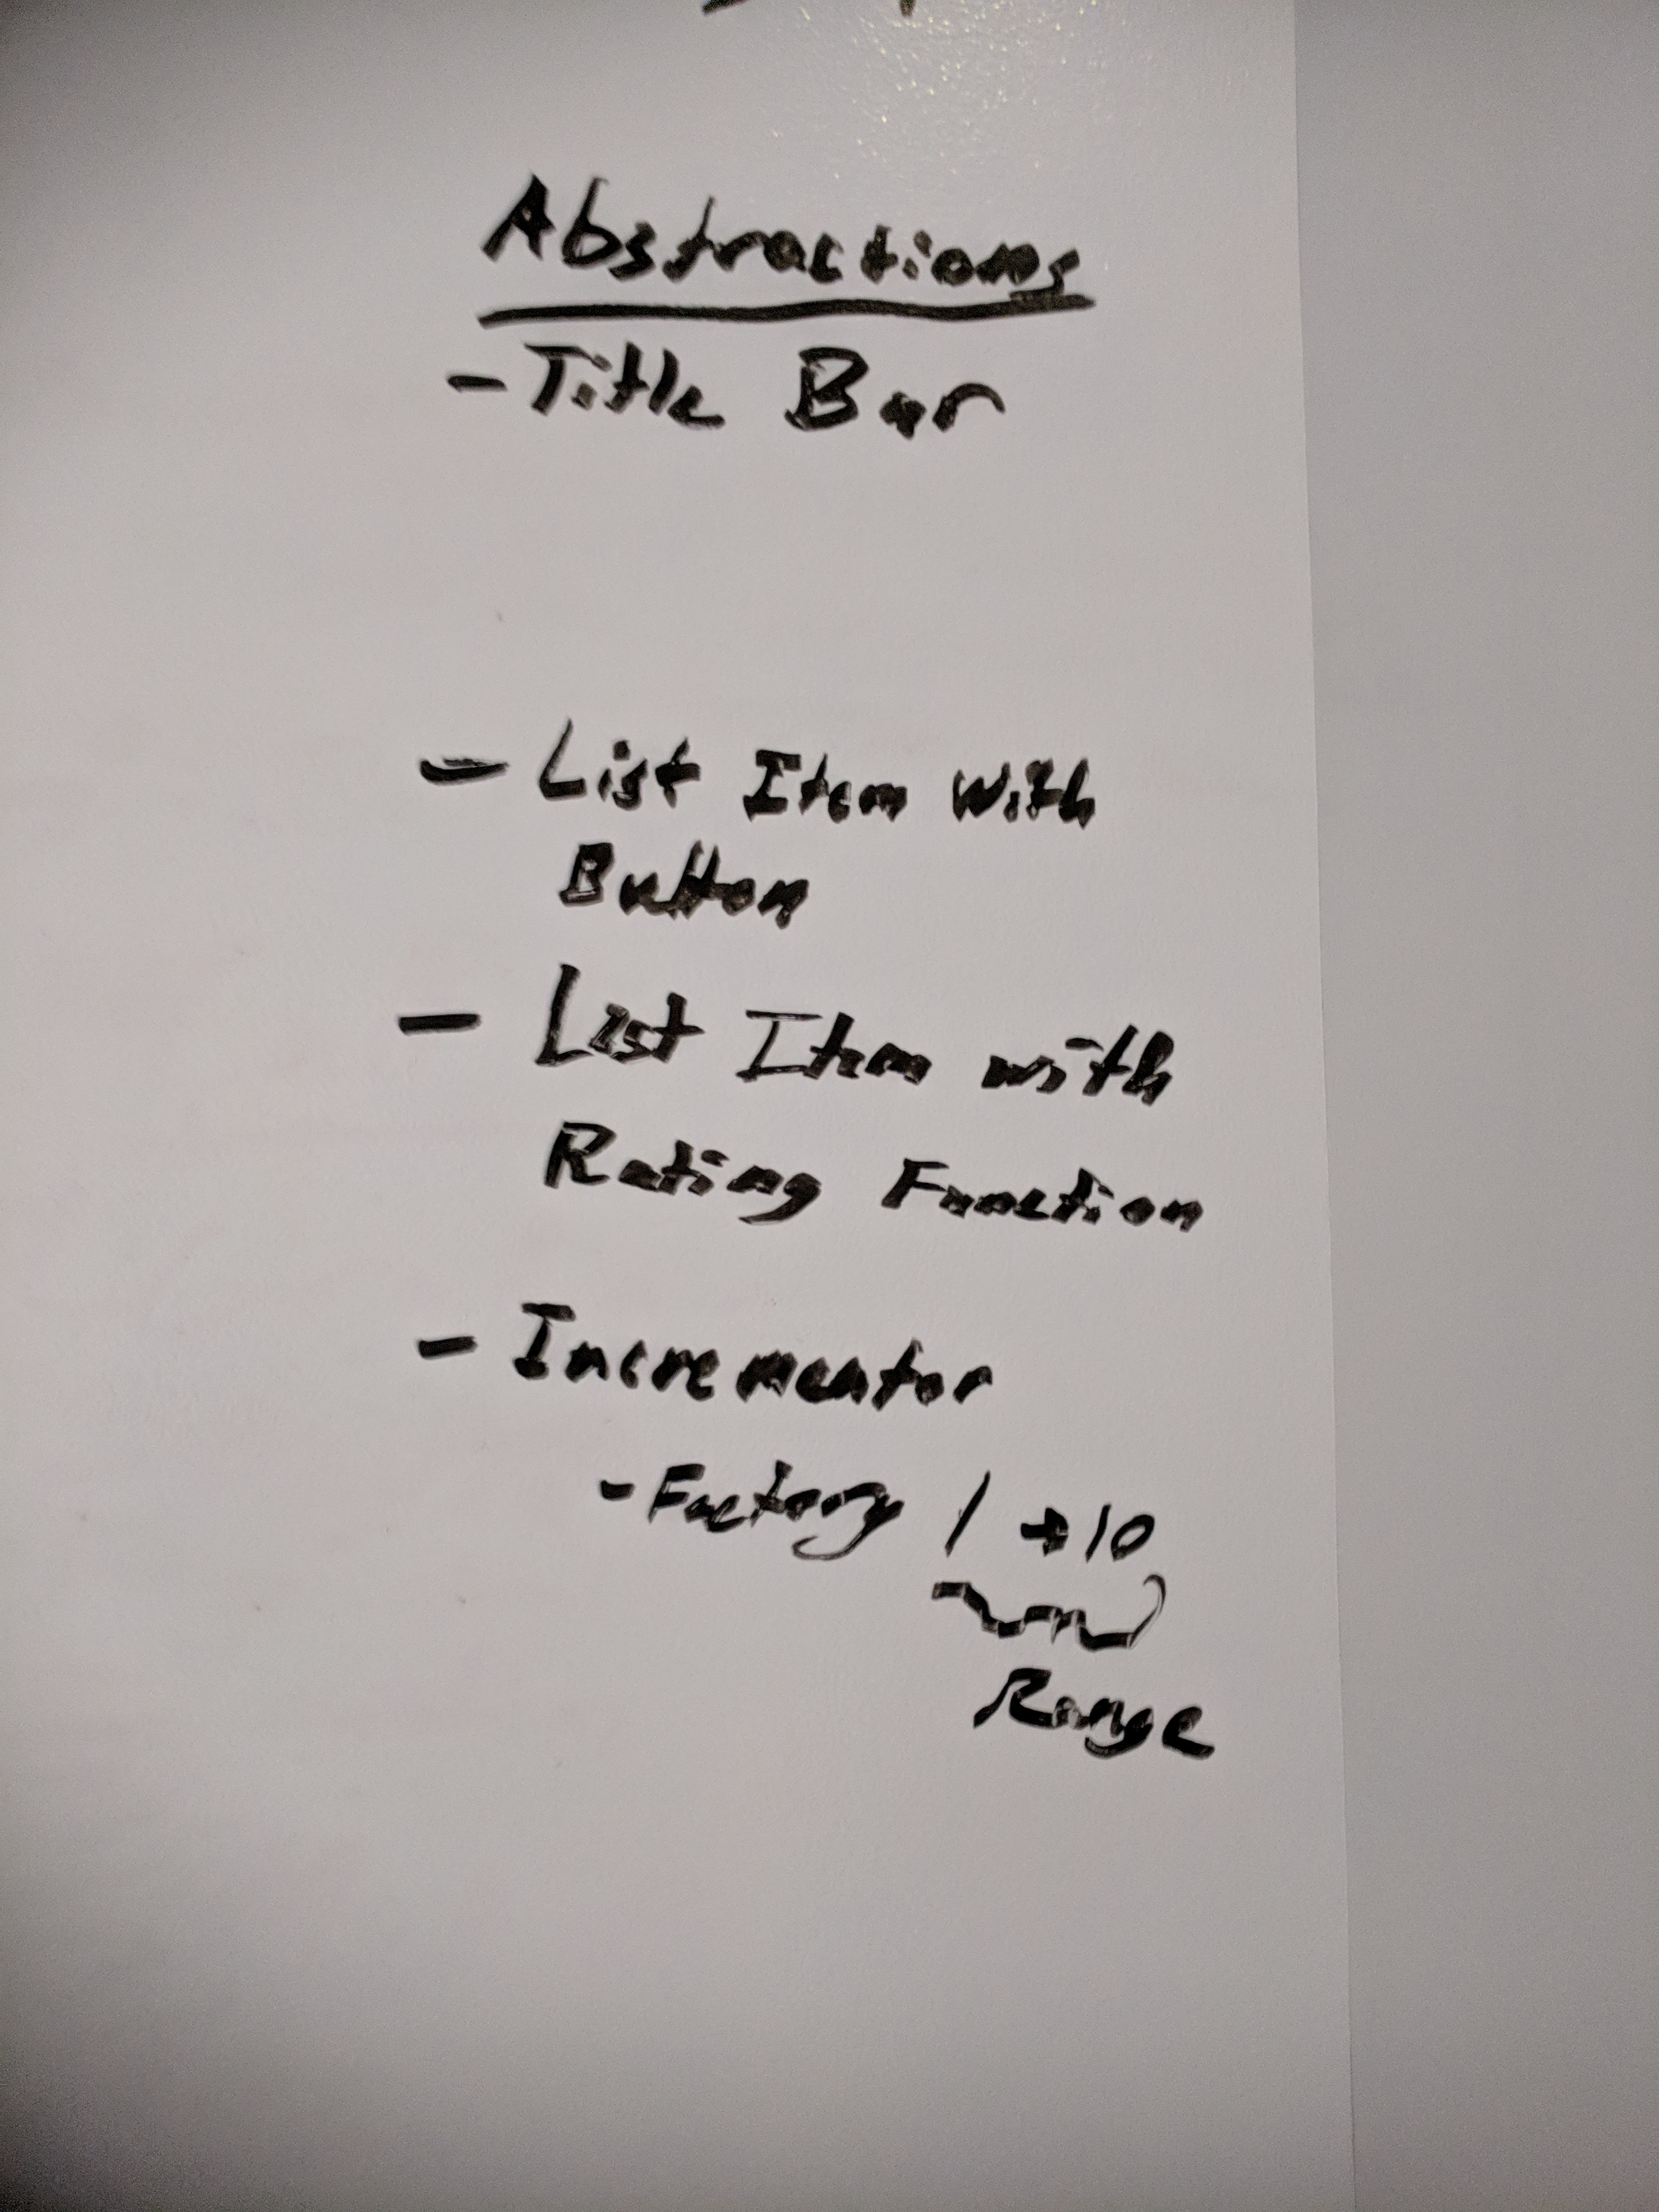 Abstractions
- Title Bar
- List Item With
Button
- List Item with
Rating Function
- Incrementor
- Factory 1 → 10
Range